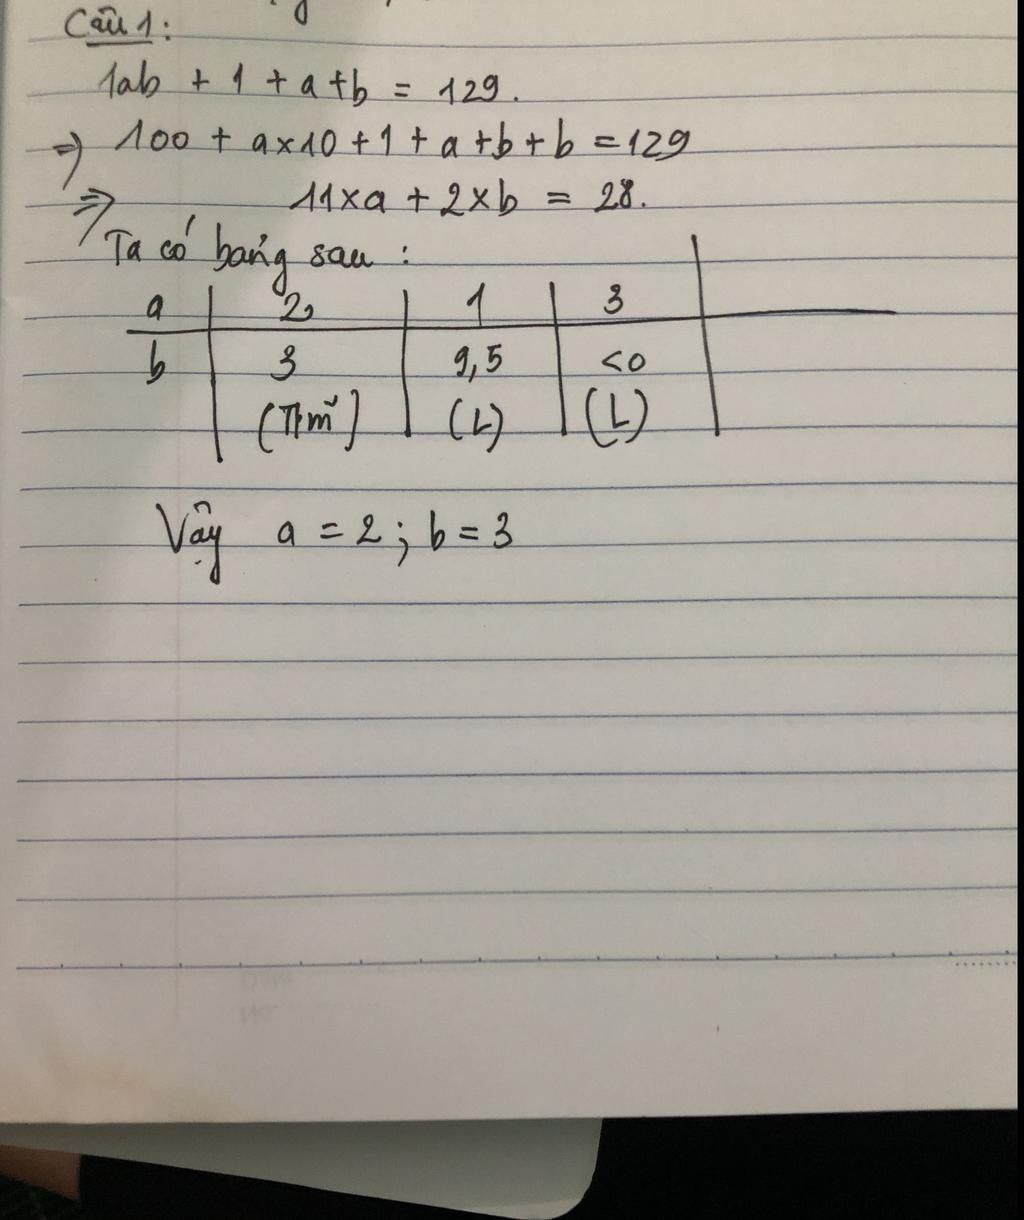 Câu 1:
1ab + 1 + a+b = 129.
=> 100 + a×10 +1 + a +b + b = 129
=> 11×a + 2×b = 28.
Ta có bảng sau :
a | 2 | 1 | 3
b | 3 | 9,5 | <0
(T/m) | (L) | (L)
Vậy a = 2 ; b = 3